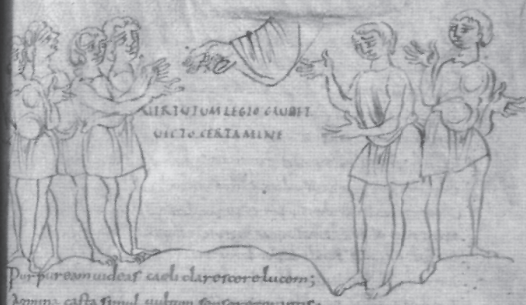 VIRTUTUM LEGIO GAUDET
VICTO CERTAMINE
Purpuream uideas caeli clarescere lucem;
Agmina casta simul